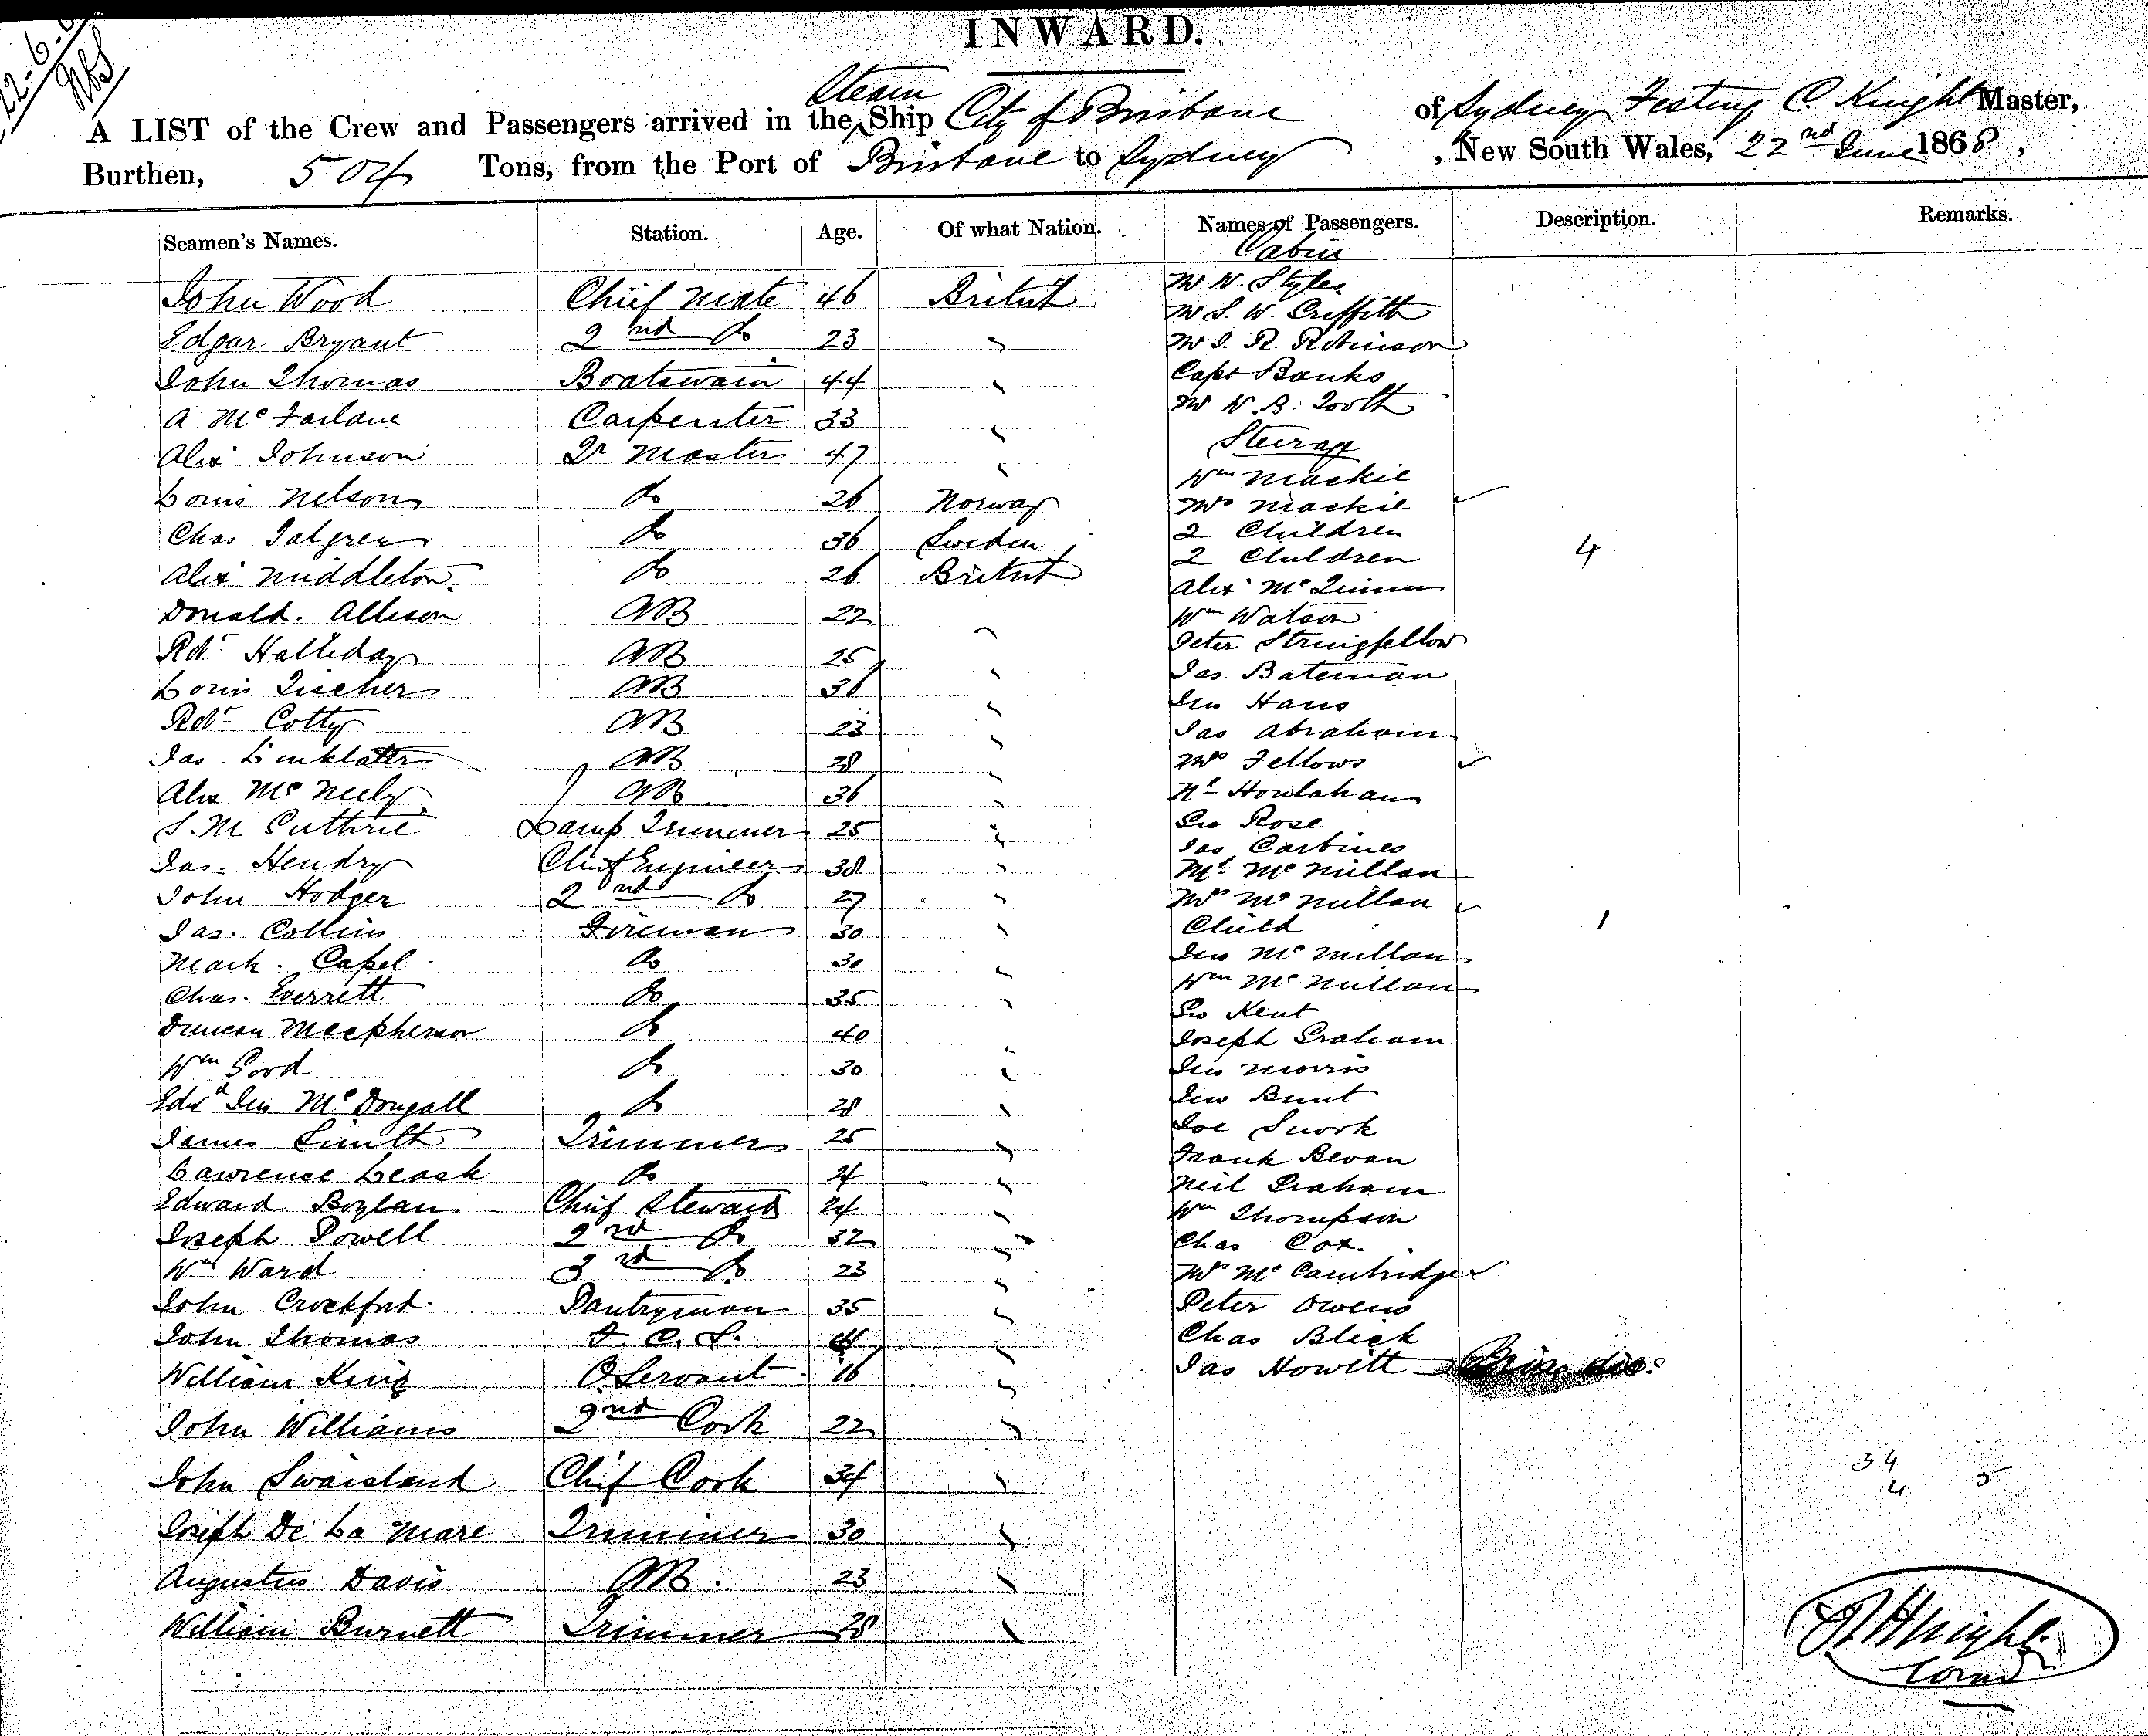 22-6-
INWARD.
A LIST of the Crew and Passengers arrived in the Steam Ship City of Brisbane of Sydney Festing C Knight Master,
Burthen, 504 Tons, from the Port of Brisbane to Sydney, New South Wales, 22nd June 1868,
Seamen's Names. Station. Age. Of what Nation. Names of Passengers. Description. Remarks.
Cabin
John Wood Chief Mate 46 British
Edgar Bryant 2nd Do 23 "
John Thomas Boatswain 44 "
A McFarlane Carpenter 33 "
Alex Johnson Qr Master 47 "
Louis Nelson Do 26 Norway
Chas Talgren Do 36 Sweden
Alex Middleton Do 26 British
Donald. Allison AB 22 "
Robt Halliday AB 25 "
Louis Tischer AB 36 "
Robt Cotty AB 23 "
Jas. Linklater AB 28 "
Alex McNeely AB 36 "
S. M Guthrie Lamp Trimmer 25 "
Jas. Hendry Chief Engineer 38 "
John Hodger 2nd Do 27 "
Jas. Collins Fireman 30 "
Mark. Capel Do 30 "
Chas. Everrett Do 35 "
Duncan Macpherson Do 40 "
Wm Good Do 30 "
Edwd Jno McDougall Do 28 "
James Smith Trimmer 25 "
Lawrence Leask Do 24 "
Edward Boylan Chief Steward 24 "
Joseph Powell 2nd Do 32 "
Wm Ward 3rd Do 23 "
John Crockford Pantryman 35 "
John Thomas F. C. S. 44 "
William King O. Servant 16 "
John Williams 2nd Cook 22 "
John Swaisland Chief Cook 34 "
Joseph De La Mare Trimmer 30 "
Augustus Davis AB. 23 "
William Burnett Trimmer 28 "
Mr W. Styles
Mr S. W. Griffith
Mr J. R. Robinson
Capt Banks
Mr W. B. Tooth
Steerage
Wm Mackie
Mrs Mackie
2 Children
2 Children 4
Alex McQuinn
Wm Watson
Peter Stringfellow
Jas Bateman
Jno Hans
Jas Abraham
Mrs Fellows
Houlahan
Geo Rose
Jas Carbines
McMillan
Mrs McMillan
Child 1
Jno McMillan
Wm McMillan
Geo Kent
Joseph Graham
Jno Morris
Jno Bunt
Joe Snook
Frank Bevan
Neil Graham
Wm Thompson
Chas Cox.
Mrs McCambridge
Peter Owens
Chas Blick
Jas Howitt
34
4 5
Knight
Comr